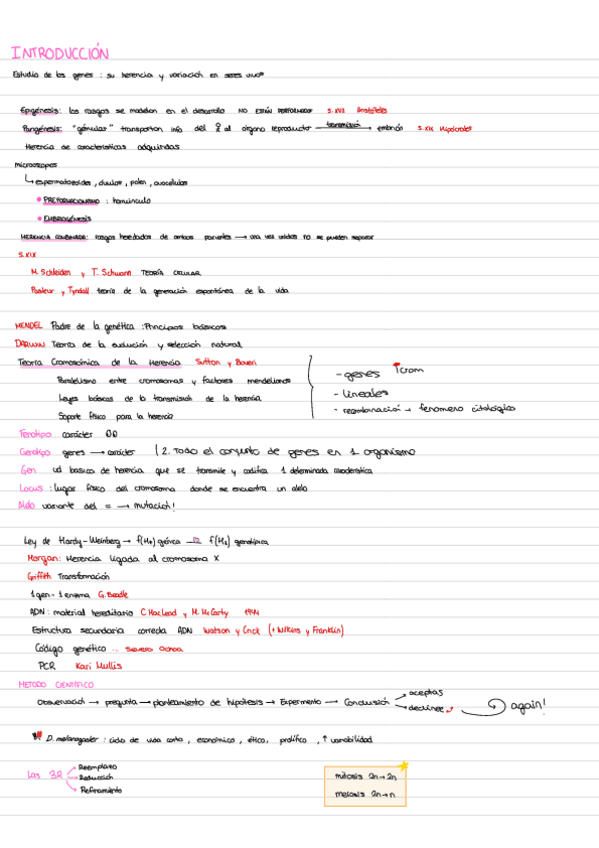 INTRODUCCIÓN
Estudio de los genes : su herencia y variación en seres vivos
Epigénesis: los rasgos se modelan en el desarrollo NO ESTÁN PREFORMADOS S.XVII Aristóteles
Pangénesis: "gémulas" transportan info del al organo reproductor transmisión → embrión S.XIX Hipócrates
Herencia de características adquiridas
microscopios
↳ espermatozoides, óvulos, polen,
• PREFORMACIONISMO : homúnculo
• EMBRIOGÉNESIS
HERENCIA COMBINADA: rasgos heredados de ambos parentales → una vez unidos no se pueden separar
S.XIX
M. Schleiden y T. Schwann TEORÍA CELULAR
Pasteur y Tyndall teoría de la generación espontánea de la vida
MENDEL Padre de la genética : Principios básicos
DARWIN Teoría de la evolución y selección natural
Teoría Cromosómica de la Herencia Sutton y Boveri
Paralelismo entre cromosomas y factores mendelianos
Leyes básicas de la transmisión de la herencia
Soporte físico para la herencia
- genes 1 crom
- lineales
- recombinación → fenómeno citológico
Fenotipo carácter
Genotipo genes → carácter | 2. Todo el conjunto de genes en 1 organismo
Gen ud básica de herencia que se transmite y codifica 1 determinada característica
Locus : lugar físico del cromosoma donde se encuentra un alelo
Alelo variante del = → mutación!
Ley de Hardy-Weinberg → génica genotípica
Morgan: Herencia ligada al cromosoma X
Griffith Transformación
1 gen - 1 enzima G. Beadle
ADN : material hereditario C. MacLeod y M. McCarty 1944
Estructura secundaria correcta ADN Watson y Crick (+ Wilkins y Franklin)
Código genético .. Severo Ochoa
PCR Kari Mullis
METODO CIENTÍFICO
Observación → pregunta → planteamiento de hipótesis → Experimento → Conclusión
aceptas
again!
D. melanogaster : ciclo de vida corto, económico, ético, prolífico, ↑ variabilidad
Las 3R
Reemplazo
Reducción
Refinamiento
mitosis 2n → 2n
meiosis 2n → n